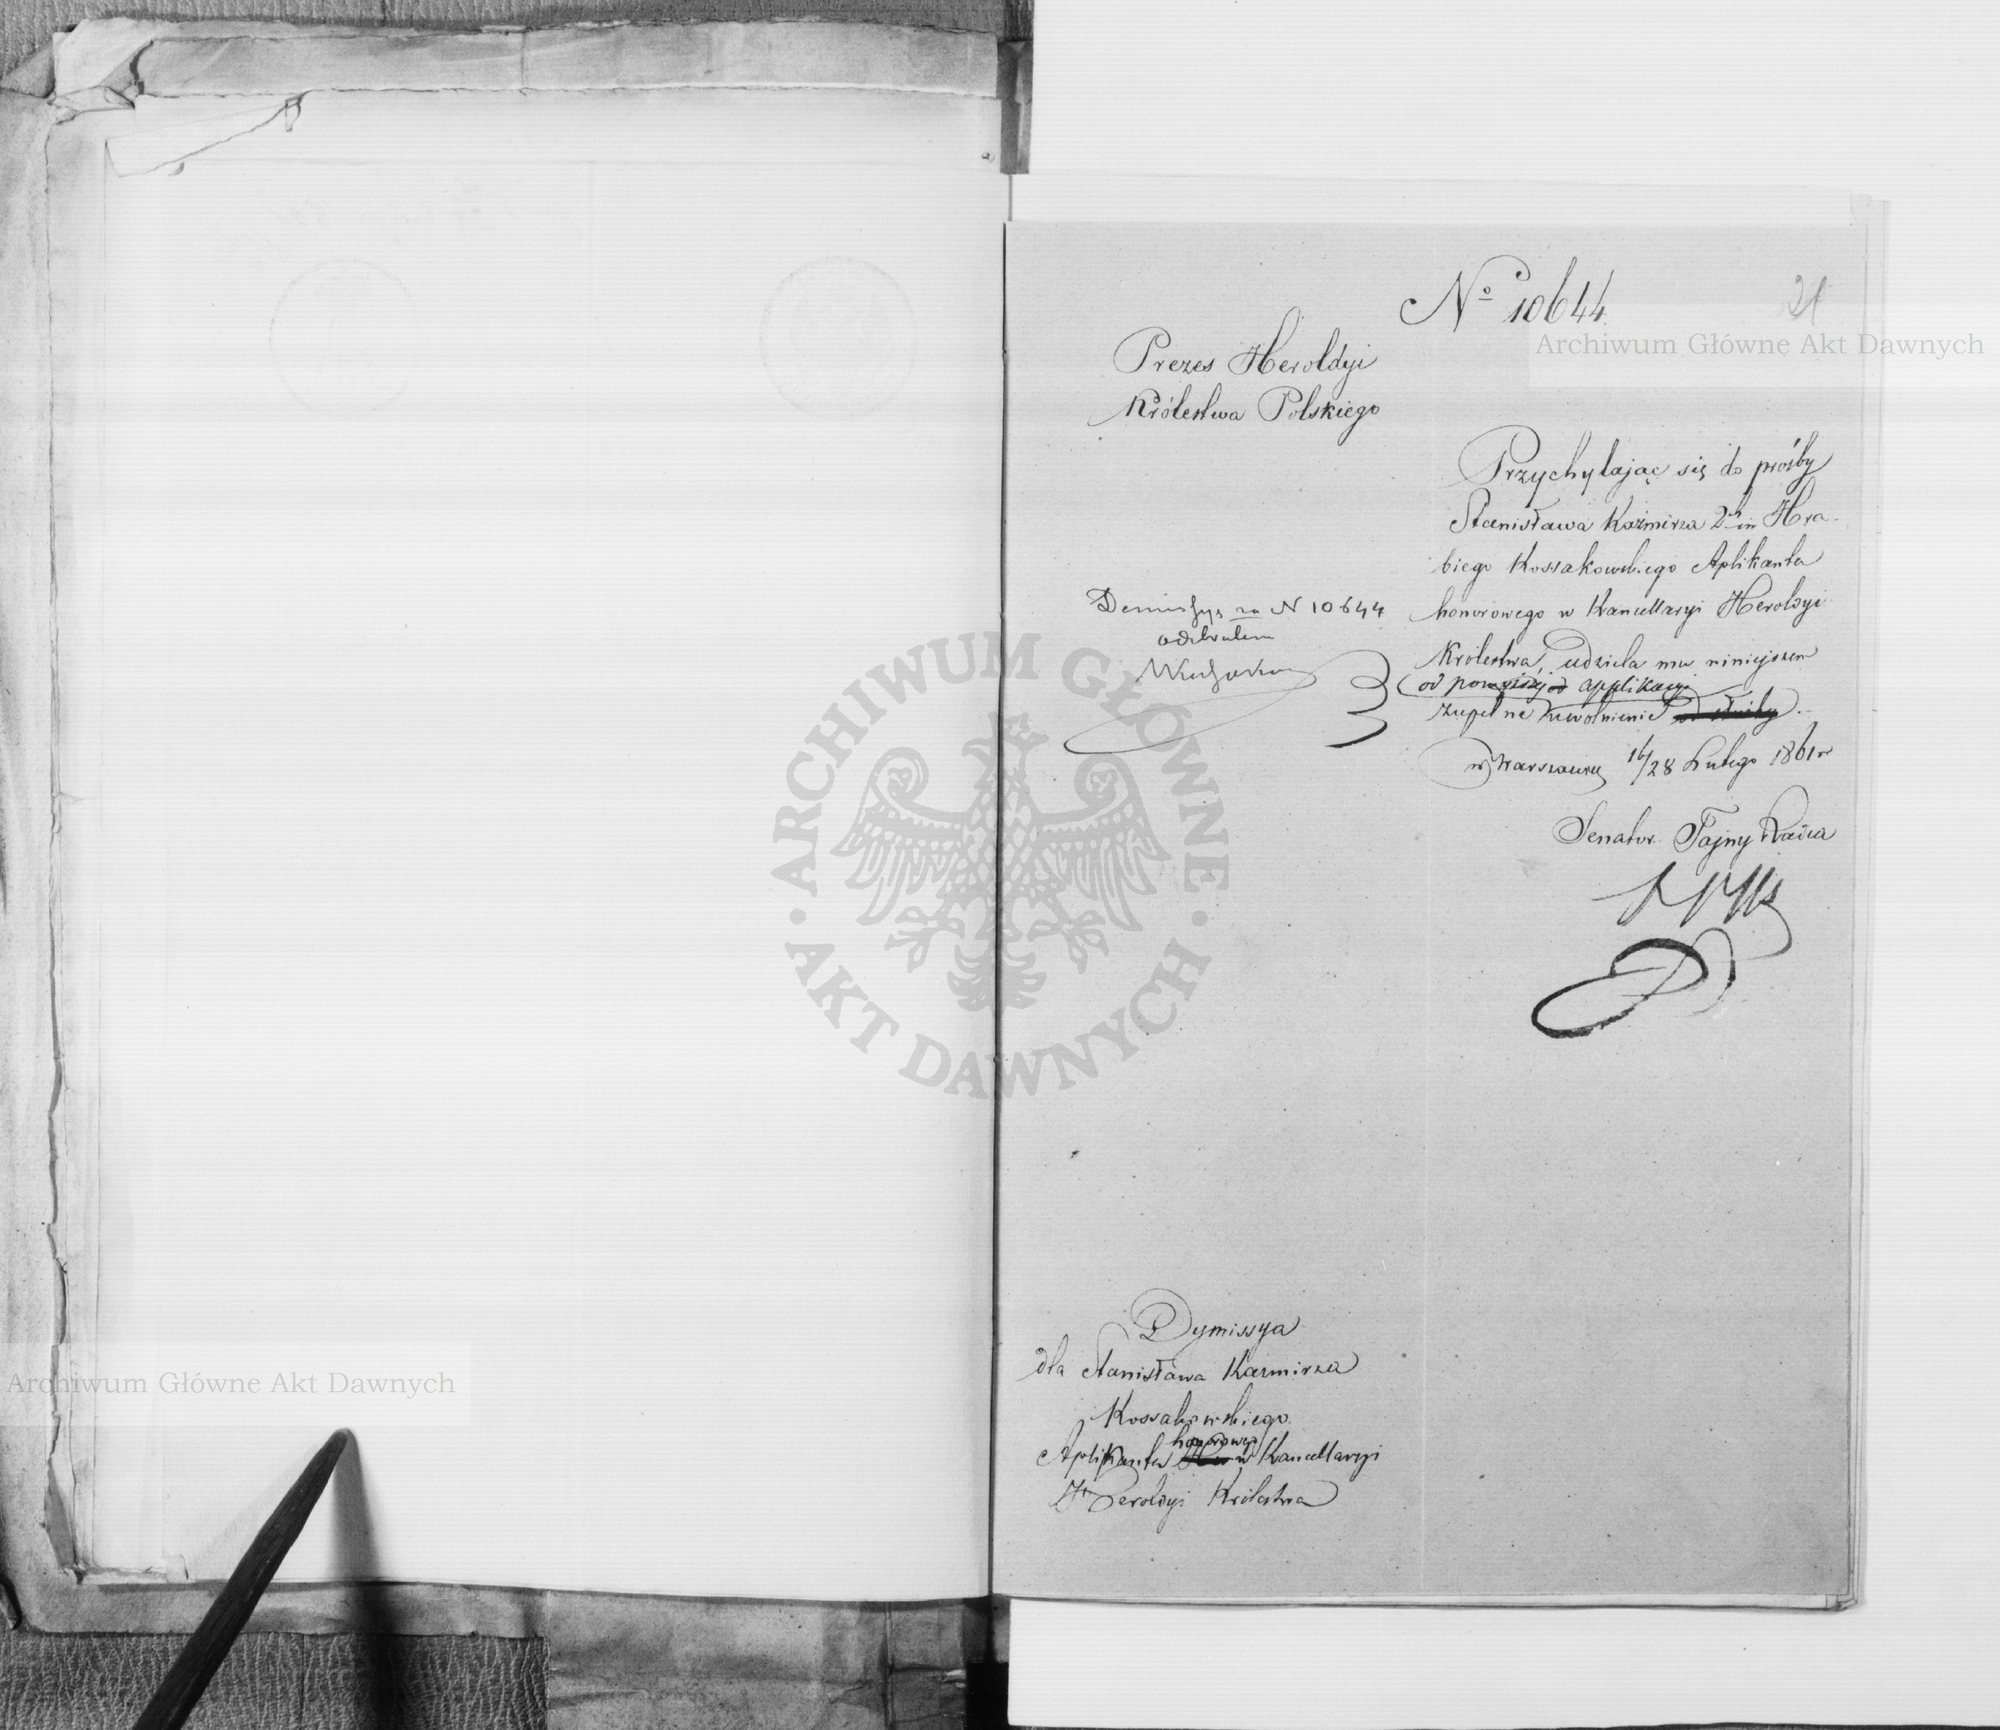 No 10644
21
Prezes Heroldyi
Królestwa Polskiego
Przychylając się do prośby
Stanisława Kaźmirza 2ch im Hra-
biego Kossakowskiego Aplikanta
honorowego w Kancellaryi Heroldyi
Królestwa, udziela mu niniejszem
od powyższej applikacyi
zupełne uwolnienie od służby.
w Warszawie 16/28 Lutego 1861 r
Senator Tajny Radca
Demissyę za N 10644
odebrałem
Dymissya
dla Stanisława Kazmirza
Kossakowskiego
honorowego
Aplikanta w Kancellaryi
Heroldyi Królestwa
Archiwum Główne Akt Dawnych
Archiwum Główne Akt Dawnych
ARCHIWUM GŁÓWNE
AKT DAWNYCH